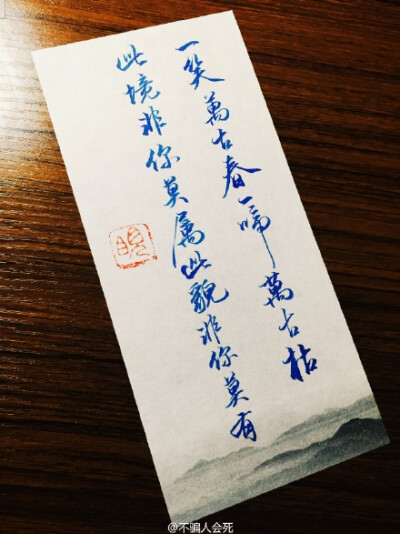 一笑萬古春一啼萬古枯
此境非你莫属此貌非你莫有
@不骗人会死